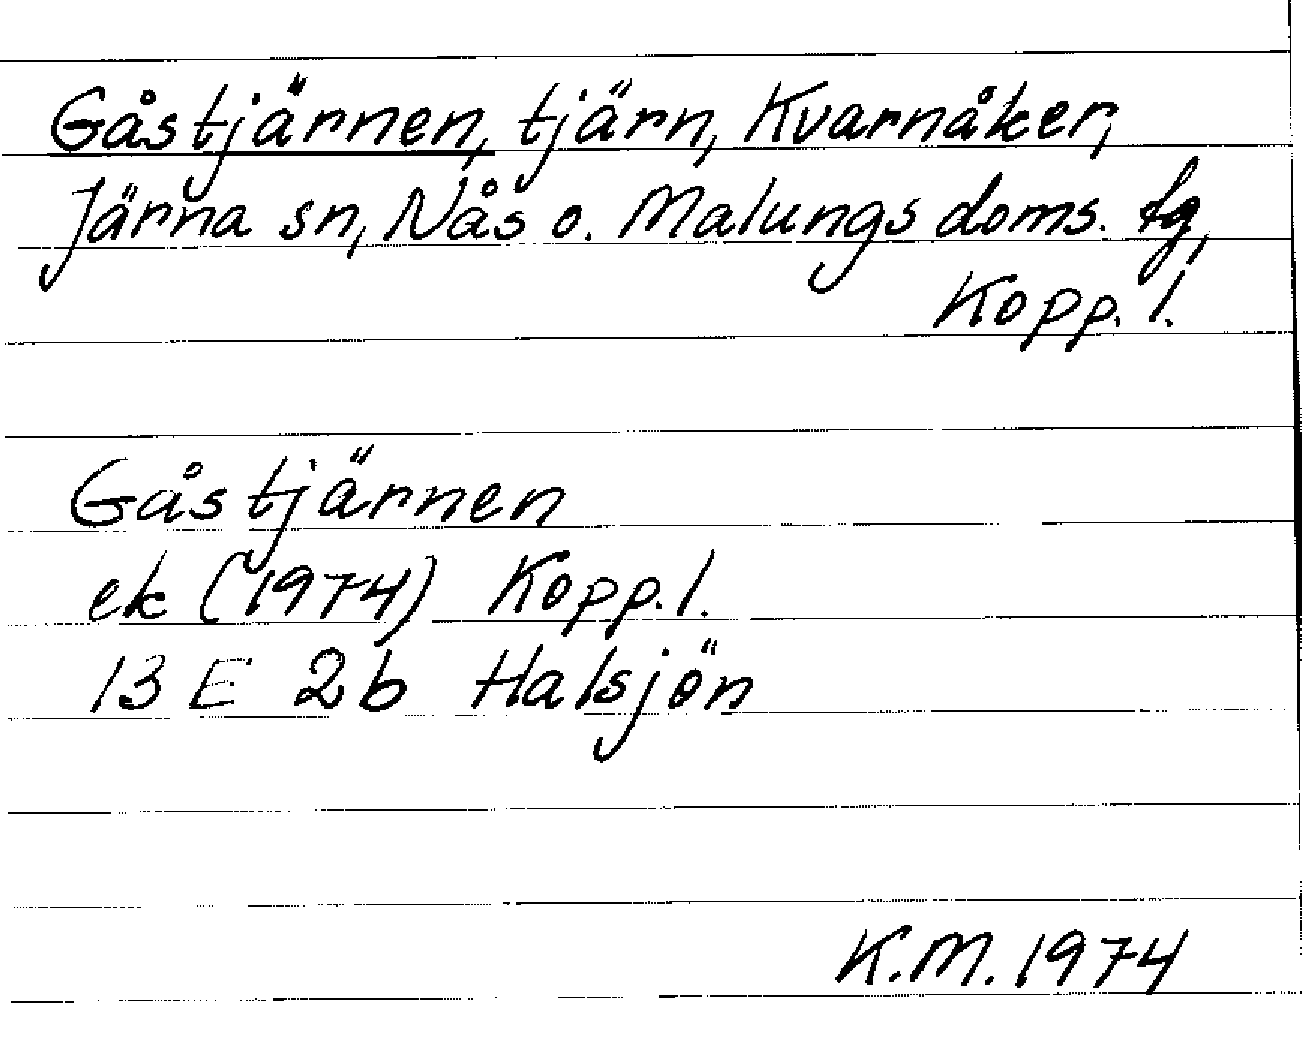 Gåstjärnen, tjärn, Kvarnåker,
Järna sn, Nås o. Malungs doms. tg,
Kopp. l.
Gåstjärnen
ek (1974) Kopp. l.
13 E 2b Halsjön
K.M. 1974